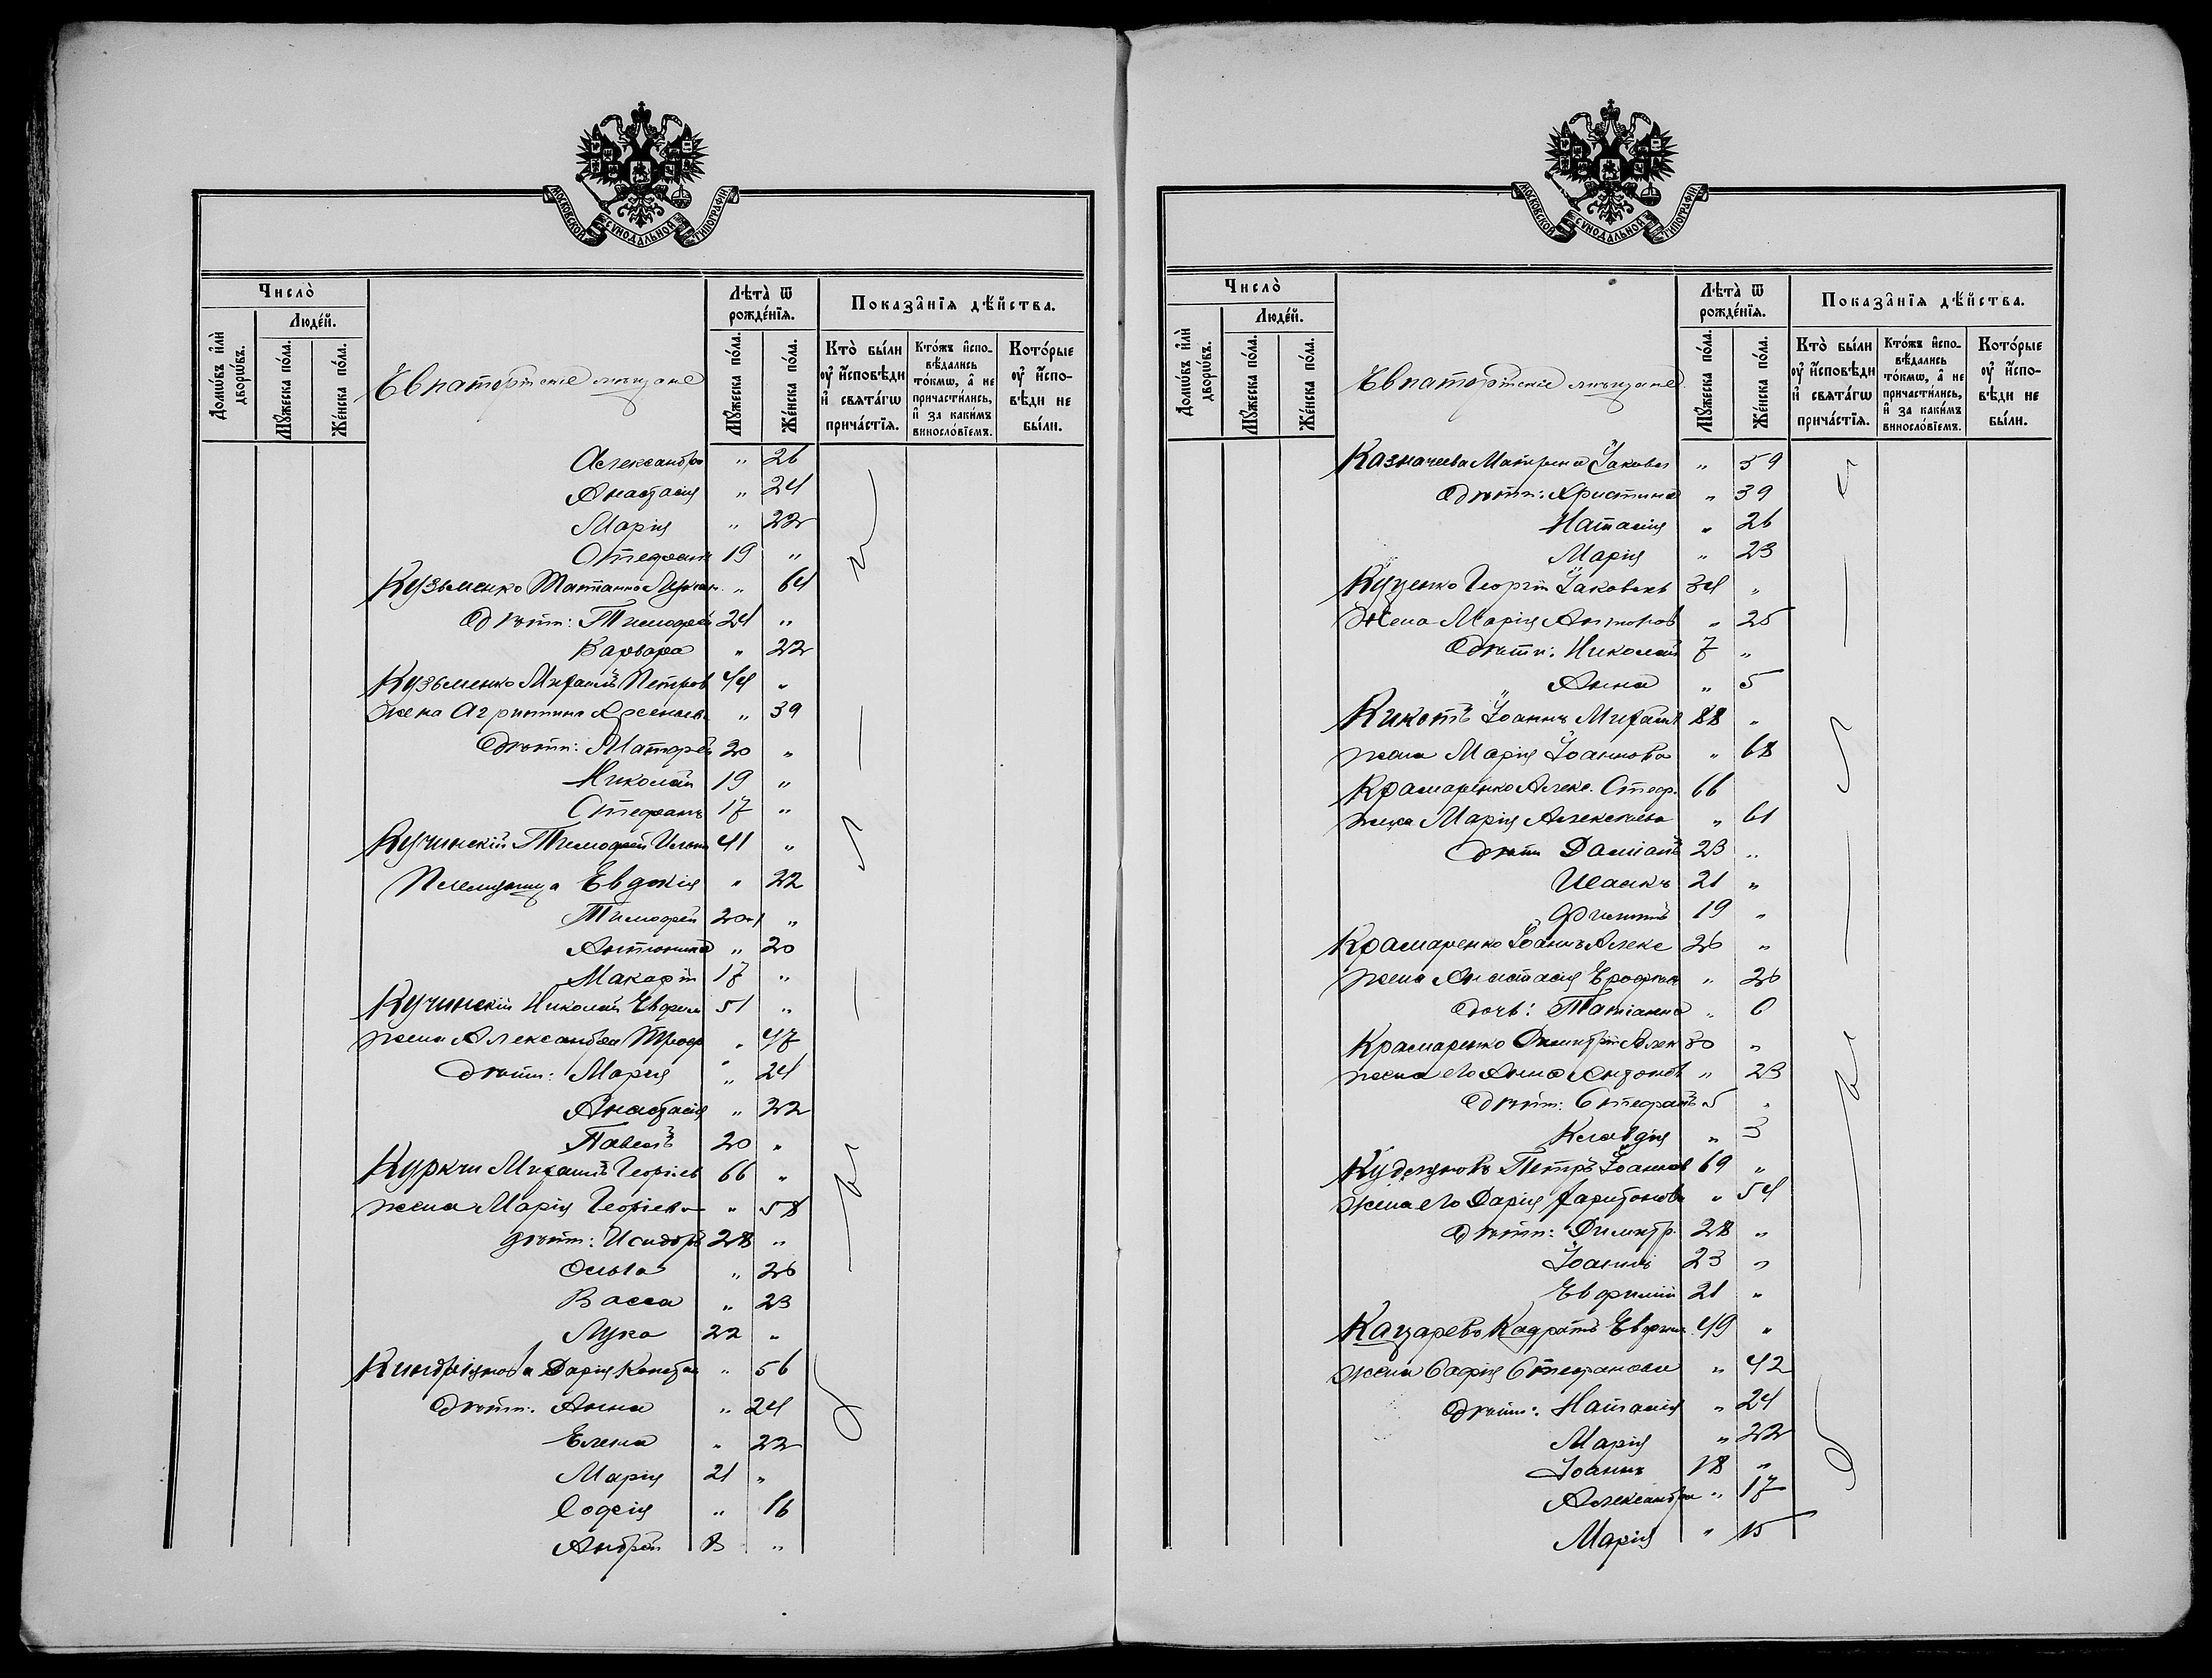 МОСКОВСКОЙ СУНОДАЛЬНОЙ ТИПОГРАФІИ
Число̀
Домѡ́въ и҆лѝ дворѡ́въ.
Люде́й.
Мꙋ́жеска по́ла.
Же́нска по́ла.
Евпаторійскіе мѣщане
Лѣта̀ ѿ рожде́нїѧ.
Мꙋ́жеска по́ла.
Же́нска по́ла.
Показа̑нїѧ дѣ́йства.
Кто̀ бы́ли оу҆ и҆сповѣ́ди и҆ свѧта́гѡ прича́стїѧ.
Кто́жъ и҆сповѣ́дались то́кмѡ, а҆ не причасти́лись, и҆ за каки́мъ винослові́емъ.
Кото́рые оу҆ и҆сповѣ́ди не бы́ли.
Александра " 26
Анастасія " 24
Марія " 22
Стефанъ 19 "
Кузьменко Татіанна " 64
Дѣти: Тимофей 24 "
Варвара " 22
Кузьменко Михаилъ Петров 44 "
Жена Агрипина Арсеньев " 39
Дѣти: Матфей 20 "
Николай 19 "
Стефанъ 17 "
Кучинскій Тимофей 41 "
Племянница Евдокія " 22
Тимофей 20 "
Антонина " 20
Макарій 17 "
Кучинскій Николай Евфим 51 "
жена Александра Троф " 47
Дѣти: Марія " 24
Анастасія " 22
Павелъ 20 "
Куркчи Михаилъ Георгіев 66 "
жена Марія Георгіева " 58
дѣти: Исидоръ 28 "
Ольга " 26
Васса " 23
Лука 22 "
Дарія Констан " 56
Дѣти: Анна " 24
Елена " 22
Марія 21 "
Софія " 16
Андрей 13 "
МОСКОВСКОЙ СУНОДАЛЬНОЙ ТИПОГРАФІИ
Число̀
Домѡ́въ и҆лѝ дворѡ́въ.
Люде́й.
Мꙋ́жеска по́ла.
Же́нска по́ла.
Евпаторійскіе мѣщане
Лѣта̀ ѿ рожде́нїѧ.
Мꙋ́жеска по́ла.
Же́нска по́ла.
Показа̑нїѧ дѣ́йства.
Кто̀ бы́ли оу҆ и҆сповѣ́ди и҆ свѧта́гѡ прича́стїѧ.
Кто́жъ и҆сповѣ́дались то́кмѡ, а҆ не причасти́лись, и҆ за каки́мъ винослові́емъ.
Кото́рые оу҆ и҆сповѣ́ди не бы́ли.
Казначеева Матрона Іаковл " 59
Дѣти: Христина " 39
Наталія " 26
Марія " 23
Куценко Георгій Іаковлев 34 "
Жена Марія Антонов " 25
Дѣти: Николай 7 "
Анна " 5
Кикотъ Іоаннъ Михаил 88 "
жена Марія Іоаннова " 68
Крамаренко Алекс. Стеф. 66
жена Марія Алексѣева " 61
Дѣти Даміанъ 23 "
Исаакъ 21 "
Филиппъ 19 "
Крамаренко Іоаннъ Алекс 26 "
жена Анастасія Ерофѣев " 26
Дочь: Татіанна " 6
Крамаренко Димитрій Алек 30 "
жена его Анна Антонов " 23
Дѣти: Стефанъ 5 "
Клавдія " 3
Петръ Іоаннов 69 "
жена его Дарія Харитонова " 54
Дѣти: Димитр. 28 "
Іоаннъ 23 "
Евфимій 21 "
Кадратъ 49 "
жена Софія Стефанова " 42
Дѣти: Наталія " 24
Марія " 22
Іоаннъ 18 "
Александра " 17
Марія " 15